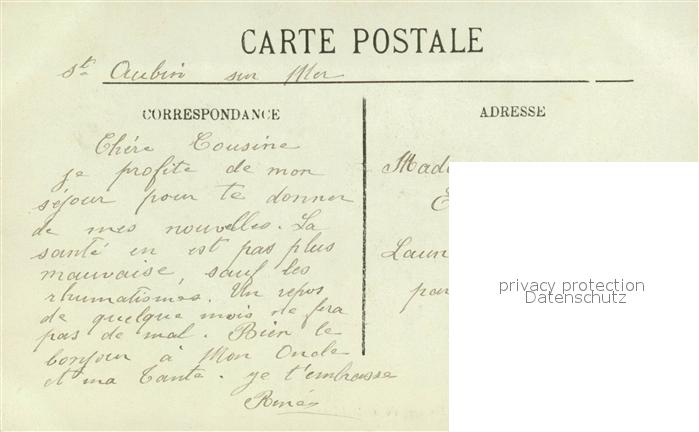 CARTE POSTALE
St Aubin sur Mer
CORRESPONDANCE
Chère Cousine
je profite de mon
séjour pour te donner
de mes nouvelles. La
santé en est pas plus
mauvaise, sauf les
rhumatismes. Un repos
de quelque mois ne fera
pas de mal. Bien le
bonjour à Mon Oncle
et ma Tante. je t'embrasse
René
ADRESSE
Mad
E
Laun
par
privacy protection
Datenschutz